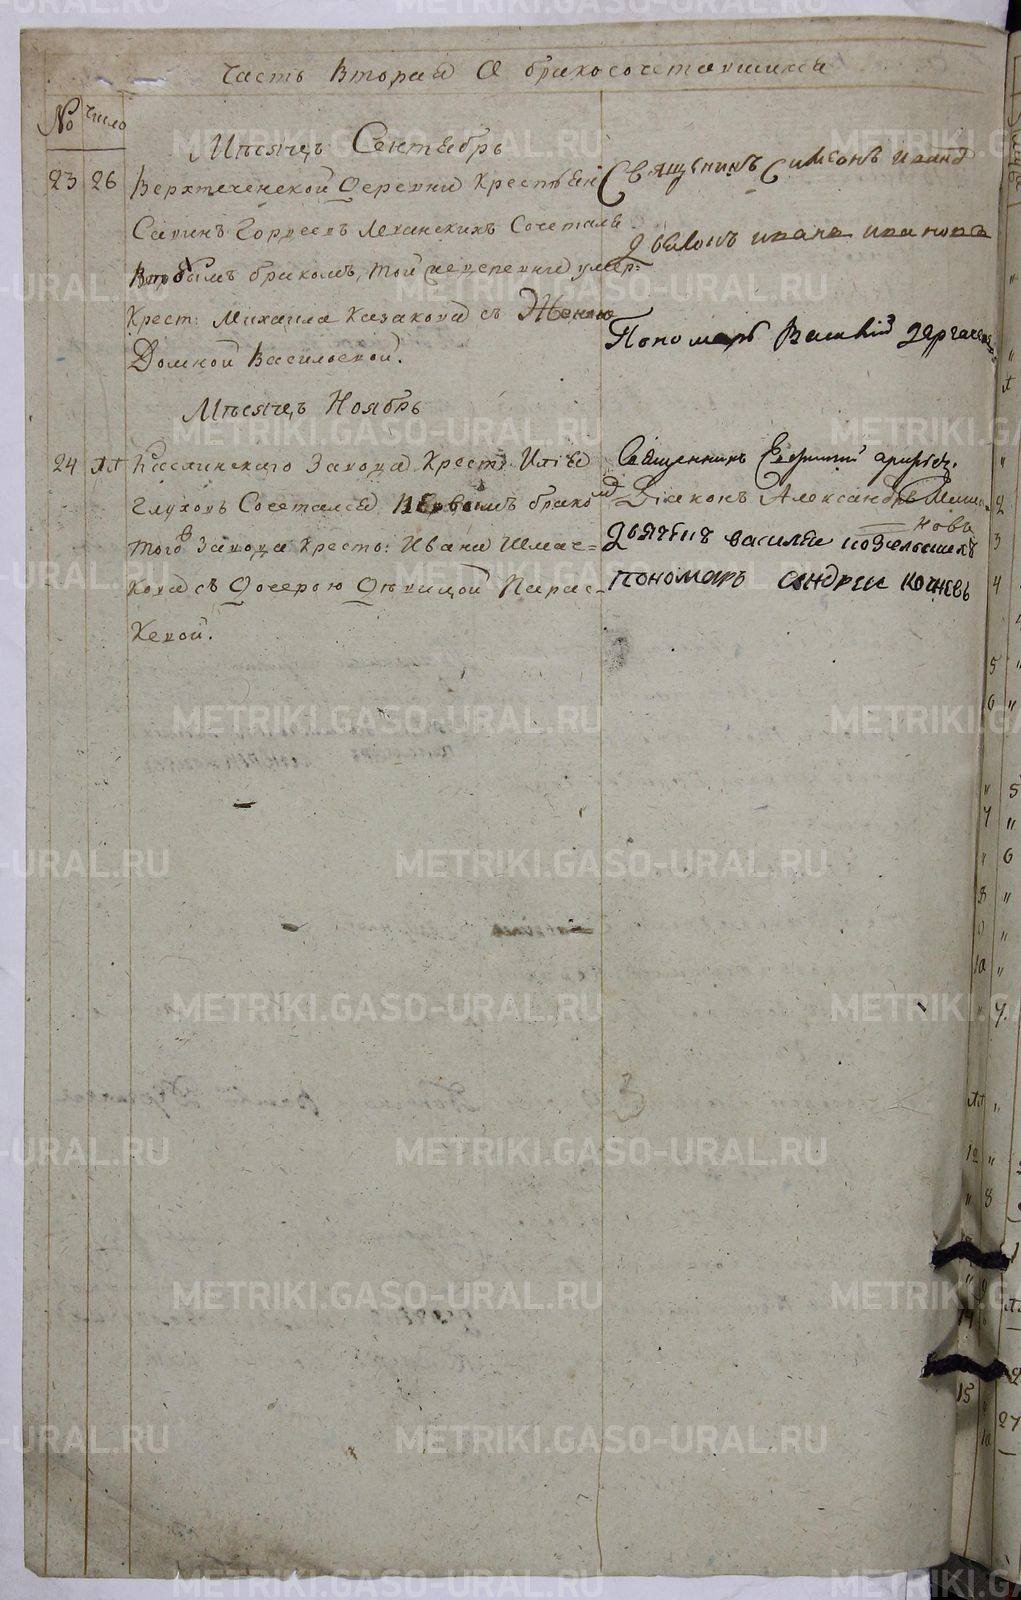 Часть Вторая О бракосочетавшихся
No Число
Мѣсяцъ Сентябрь
23 26 Верхтеченской деревни крестьян
Савинъ Гордеевъ Сочетался
вторымъ бракомъ, той же деревни умер:
крест: Михаила Казакова съ Женою
Домной Васильевой.
Священникъ Симеонъ
Дьяконъ Иванъ Ивановъ
Пономарь
Мѣсяцъ Ноябрь
24 11 Каслинскаго Завода Крест: Илья
Глуховъ Сочетался первымъ бракомъ
того Завода Крест: Ивана Шмач=
кова съ Дочерью Дѣвицой Парас=
кевой.
Священникъ
Діаконъ Александръ
дьячекъ василей
пономарь андреи кочневъ
METRIKI.GASO-URAL.RU